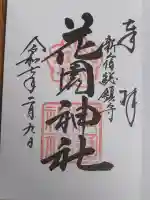 奉拝
新宿総鎮守
花園神社
令和六年二月九日